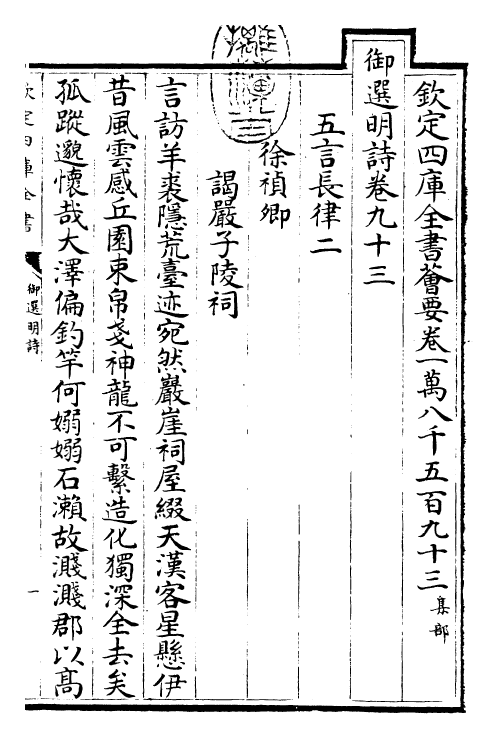 欽定四庫全書薈要卷一萬八千五百九十三集部
御選明詩卷九十三
五言長律二
徐禎卿
謁嚴子陵祠
言訪羊裘隱荒臺迹宛然巖崖祠屋綴天漢客星懸伊
昔風雲感丘園束帛戔神龍不可繫造化獨深全去矣
孤蹤邈懷哉大澤偏釣竿何嫋嫋石瀨故濺濺郡以髙
欽定四庫全書
御選明詩
一